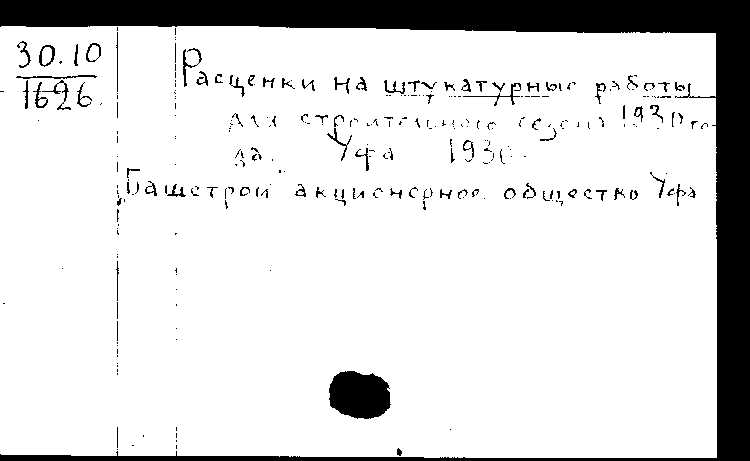 30.10
1626
Расценки на штукатурные работы
для строительного сезона 1930 го-
да. Уфа 1930.
Башстрой акционерное общество Уфа